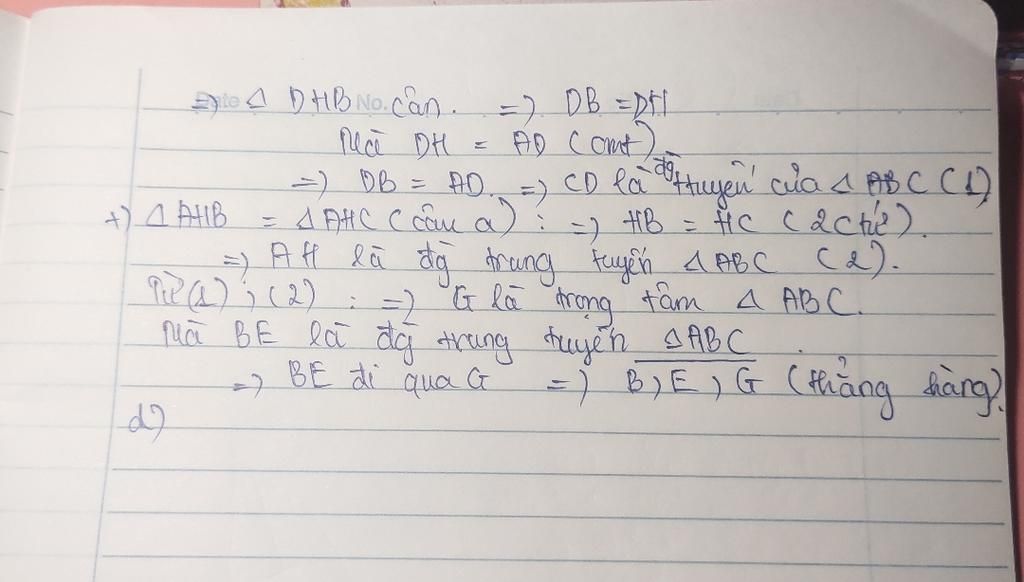 Date No.
=> Δ DHB cân. => DB = DH
Mà DH = AD (cmt)
=> DB = AD. => CD là đg ttuyến của Δ ABC (1)
+) Δ AHB = Δ AHC (câu a) : => HB = HC (2 ctứ).
=> AH là đg trung tuyến Δ ABC (2).
Từ (1) ; (2) : => G là trọng tâm Δ ABC.
Mà BE là đg trung tuyến Δ ABC.
=> BE đi qua G => B, E, G (thẳng hàng).
d)